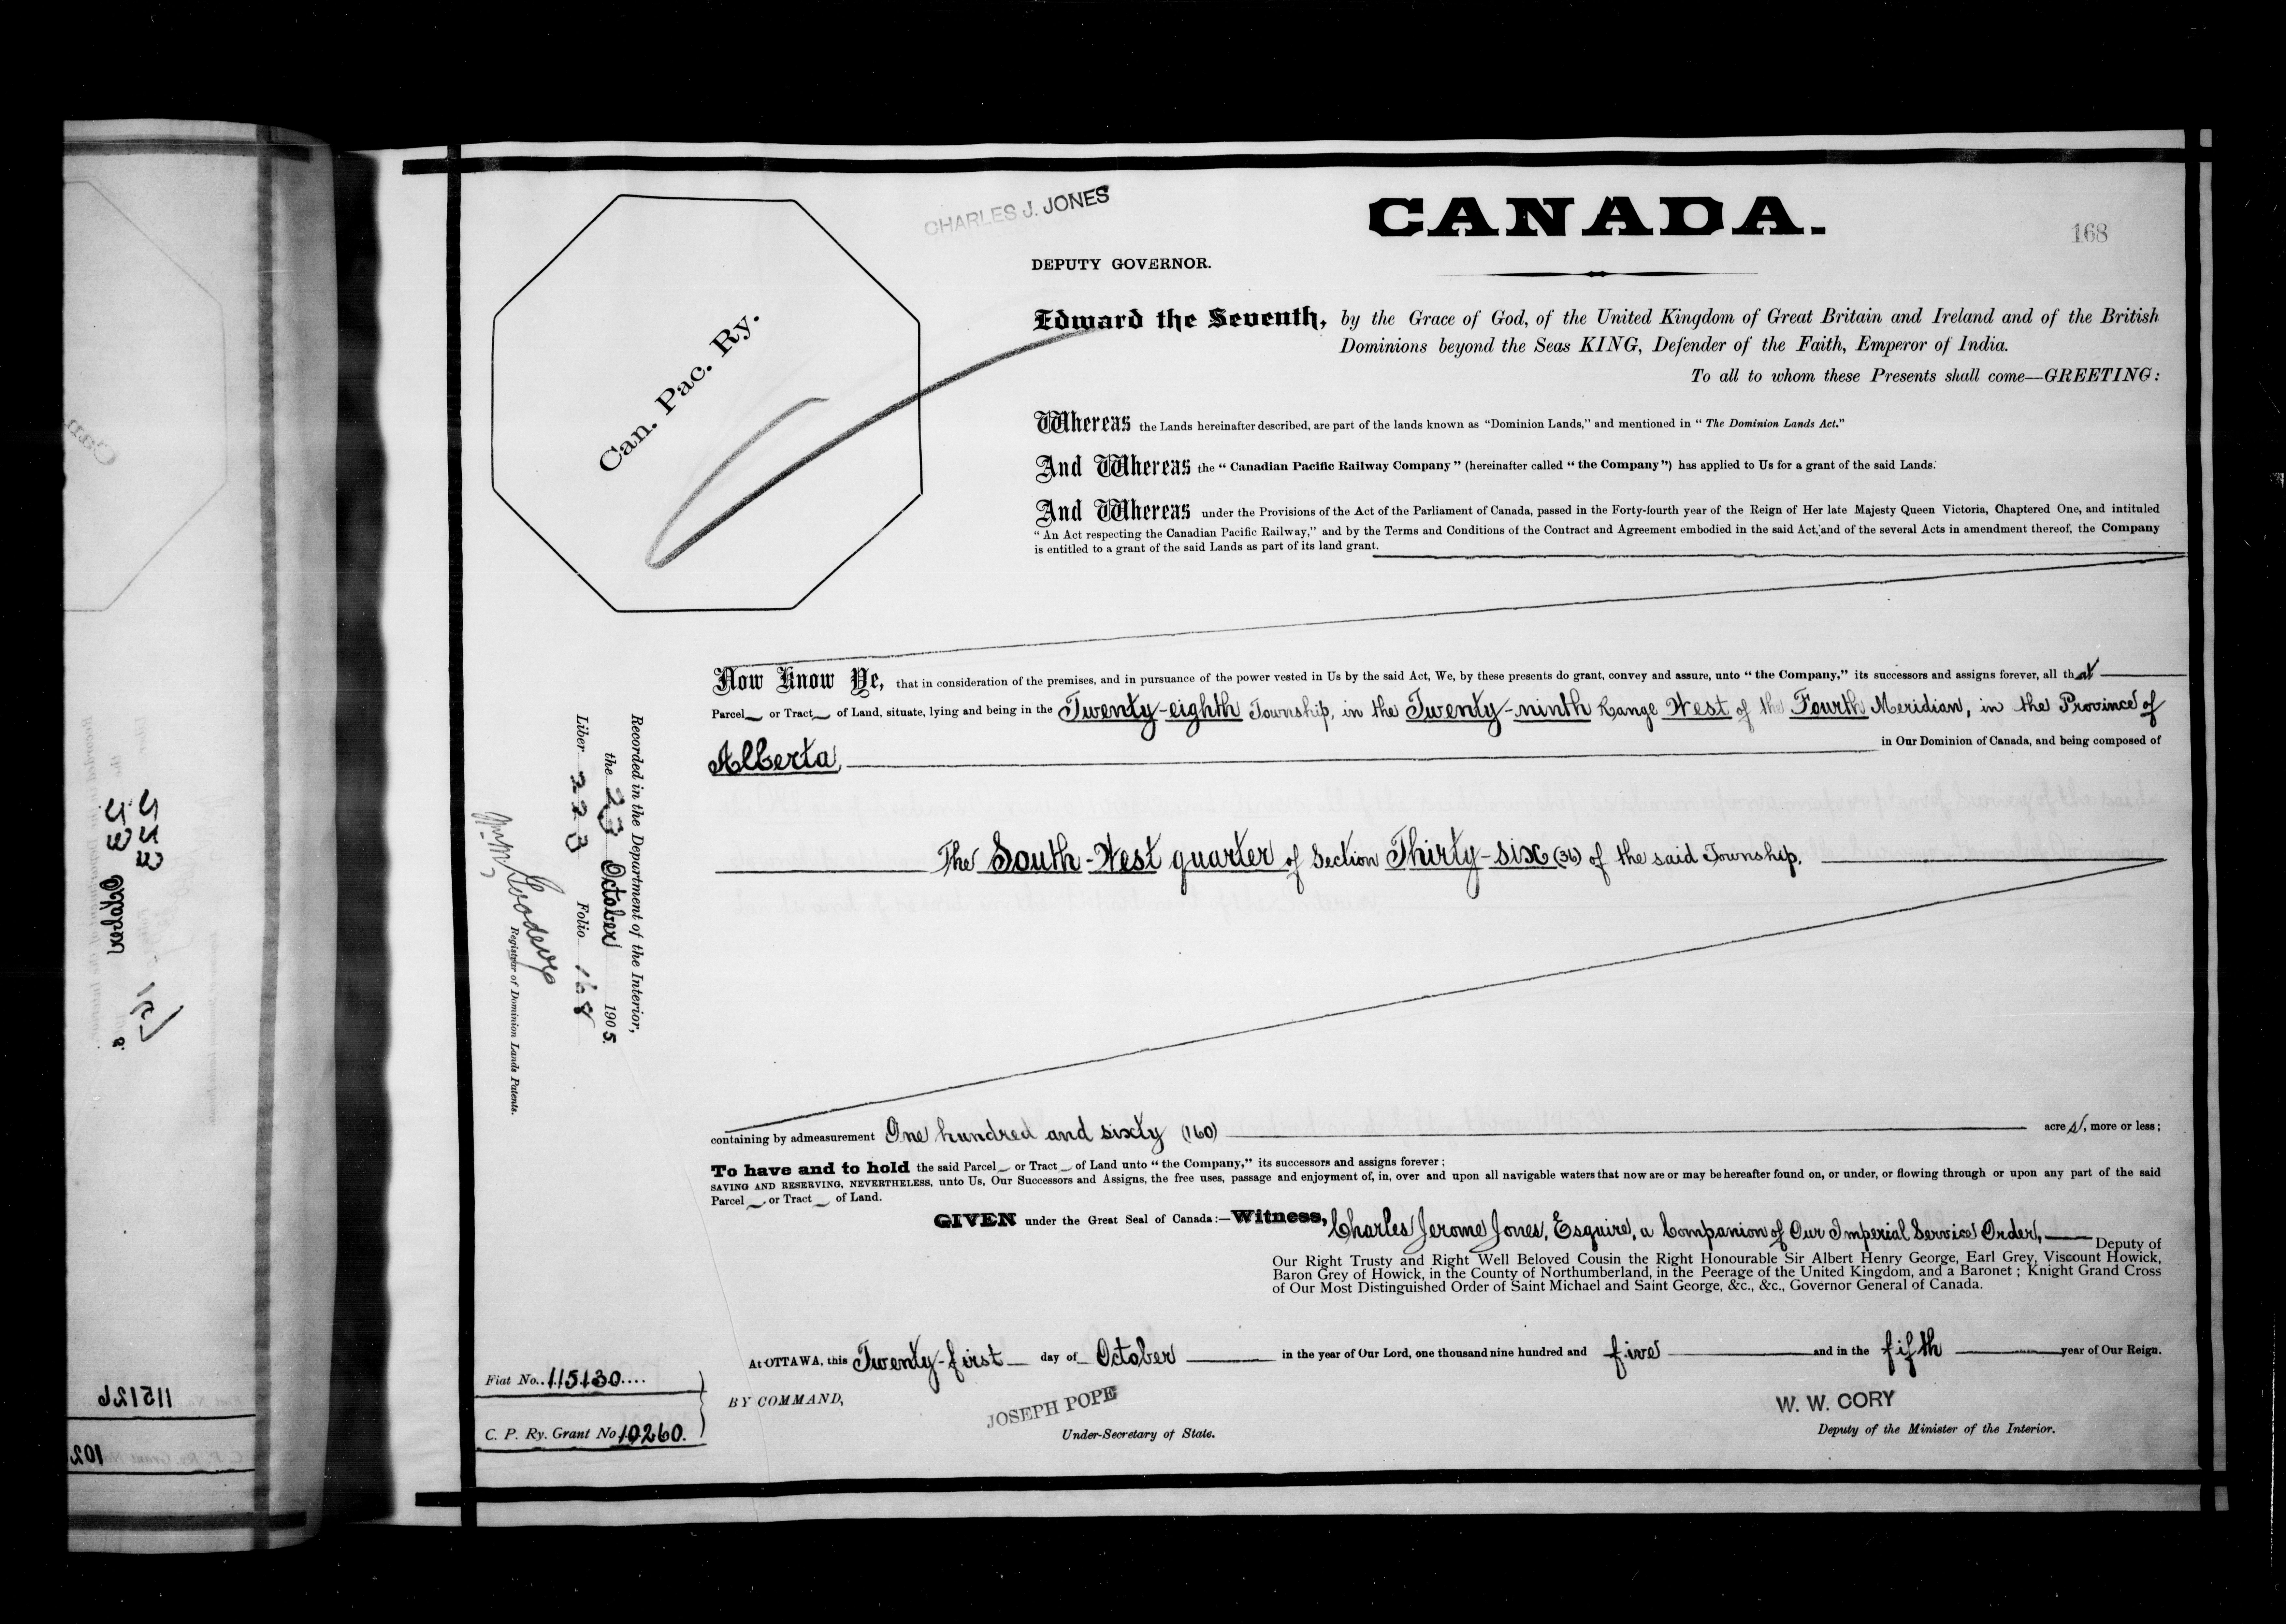 CHARLES J. JONES
CANADA.
168
DEPUTY GOVERNOR.
Can. Pac. Ry.
Edward the Seventh, by the Grace of God, of the United Kingdom of Great Britain and Ireland and of the British
Dominions beyond the Seas KING, Defender of the Faith, Emperor of India.
To all to whom these Presents shall come—GREETING:
Whereas the Lands hereinafter described, are part of the lands known as "Dominion Lands," and mentioned in "The Dominion Lands Act."
And Whereas the "Canadian Pacific Railway Company" (hereinafter called "the Company") has applied to Us for a grant of the said Lands.
And Whereas under the Provisions of the Act of the Parliament of Canada, passed in the Forty-fourth year of the Reign of Her late Majesty Queen Victoria, Chaptered One, and intituled
"An Act respecting the Canadian Pacific Railway," and by the Terms and Conditions of the Contract and Agreement embodied in the said Act, and of the several Acts in amendment thereof, the Company
is entitled to a grant of the said Lands as part of its land grant.
Now Know Ye, that in consideration of the premises, and in pursuance of the power vested in Us by the said Act, We, by these presents do grant, convey and assure, unto "the Company," its successors and assigns forever, all that
Parcel or Tract of Land, situate, lying and being in the Twenty-eighth Township, in the Twenty-ninth Range West of the Fourth Meridian, in the Province of
Alberta, in Our Dominion of Canada, and being composed of
The South-West quarter of Section Thirty-six (36) of the said Township.
containing by admeasurement One hundred and sixty (160) acres, more or less;
To have and to hold the said Parcel or Tract of Land unto "the Company," its successors and assigns forever;
SAVING AND RESERVING, NEVERTHELESS, unto Us, Our Successors and Assigns, the free uses, passage and enjoyment of, in, over and upon all navigable waters that now are or may be hereafter found on, or under, or flowing through or upon any part of the said
Parcel or Tract of Land.
GIVEN under the Great Seal of Canada:—Witness, Charles Jerome Jones, Esquire, a Companion of Our Imperial Service Order, Deputy of
Our Right Trusty and Right Well Beloved Cousin the Right Honourable Sir Albert Henry George, Earl Grey, Viscount Howick,
Baron Grey of Howick, in the County of Northumberland, in the Peerage of the United Kingdom, and a Baronet; Knight Grand Cross
of Our Most Distinguished Order of Saint Michael and Saint George, &c., &c., Governor General of Canada.
At OTTAWA, this Twenty-first day of October in the year of Our Lord, one thousand nine hundred and five and in the fifth year of Our Reign.
BY COMMAND,
JOSEPH POPE
Under-Secretary of State.
W. W. CORY
Deputy of the Minister of the Interior.
Fiat No. 115130
C. P. Ry. Grant No 10260.
Recorded in the Department of the Interior,
the 23 October 1905.
Liber 223 Folio 168
Registrar of Dominion Lands Patents.
October
115126
102